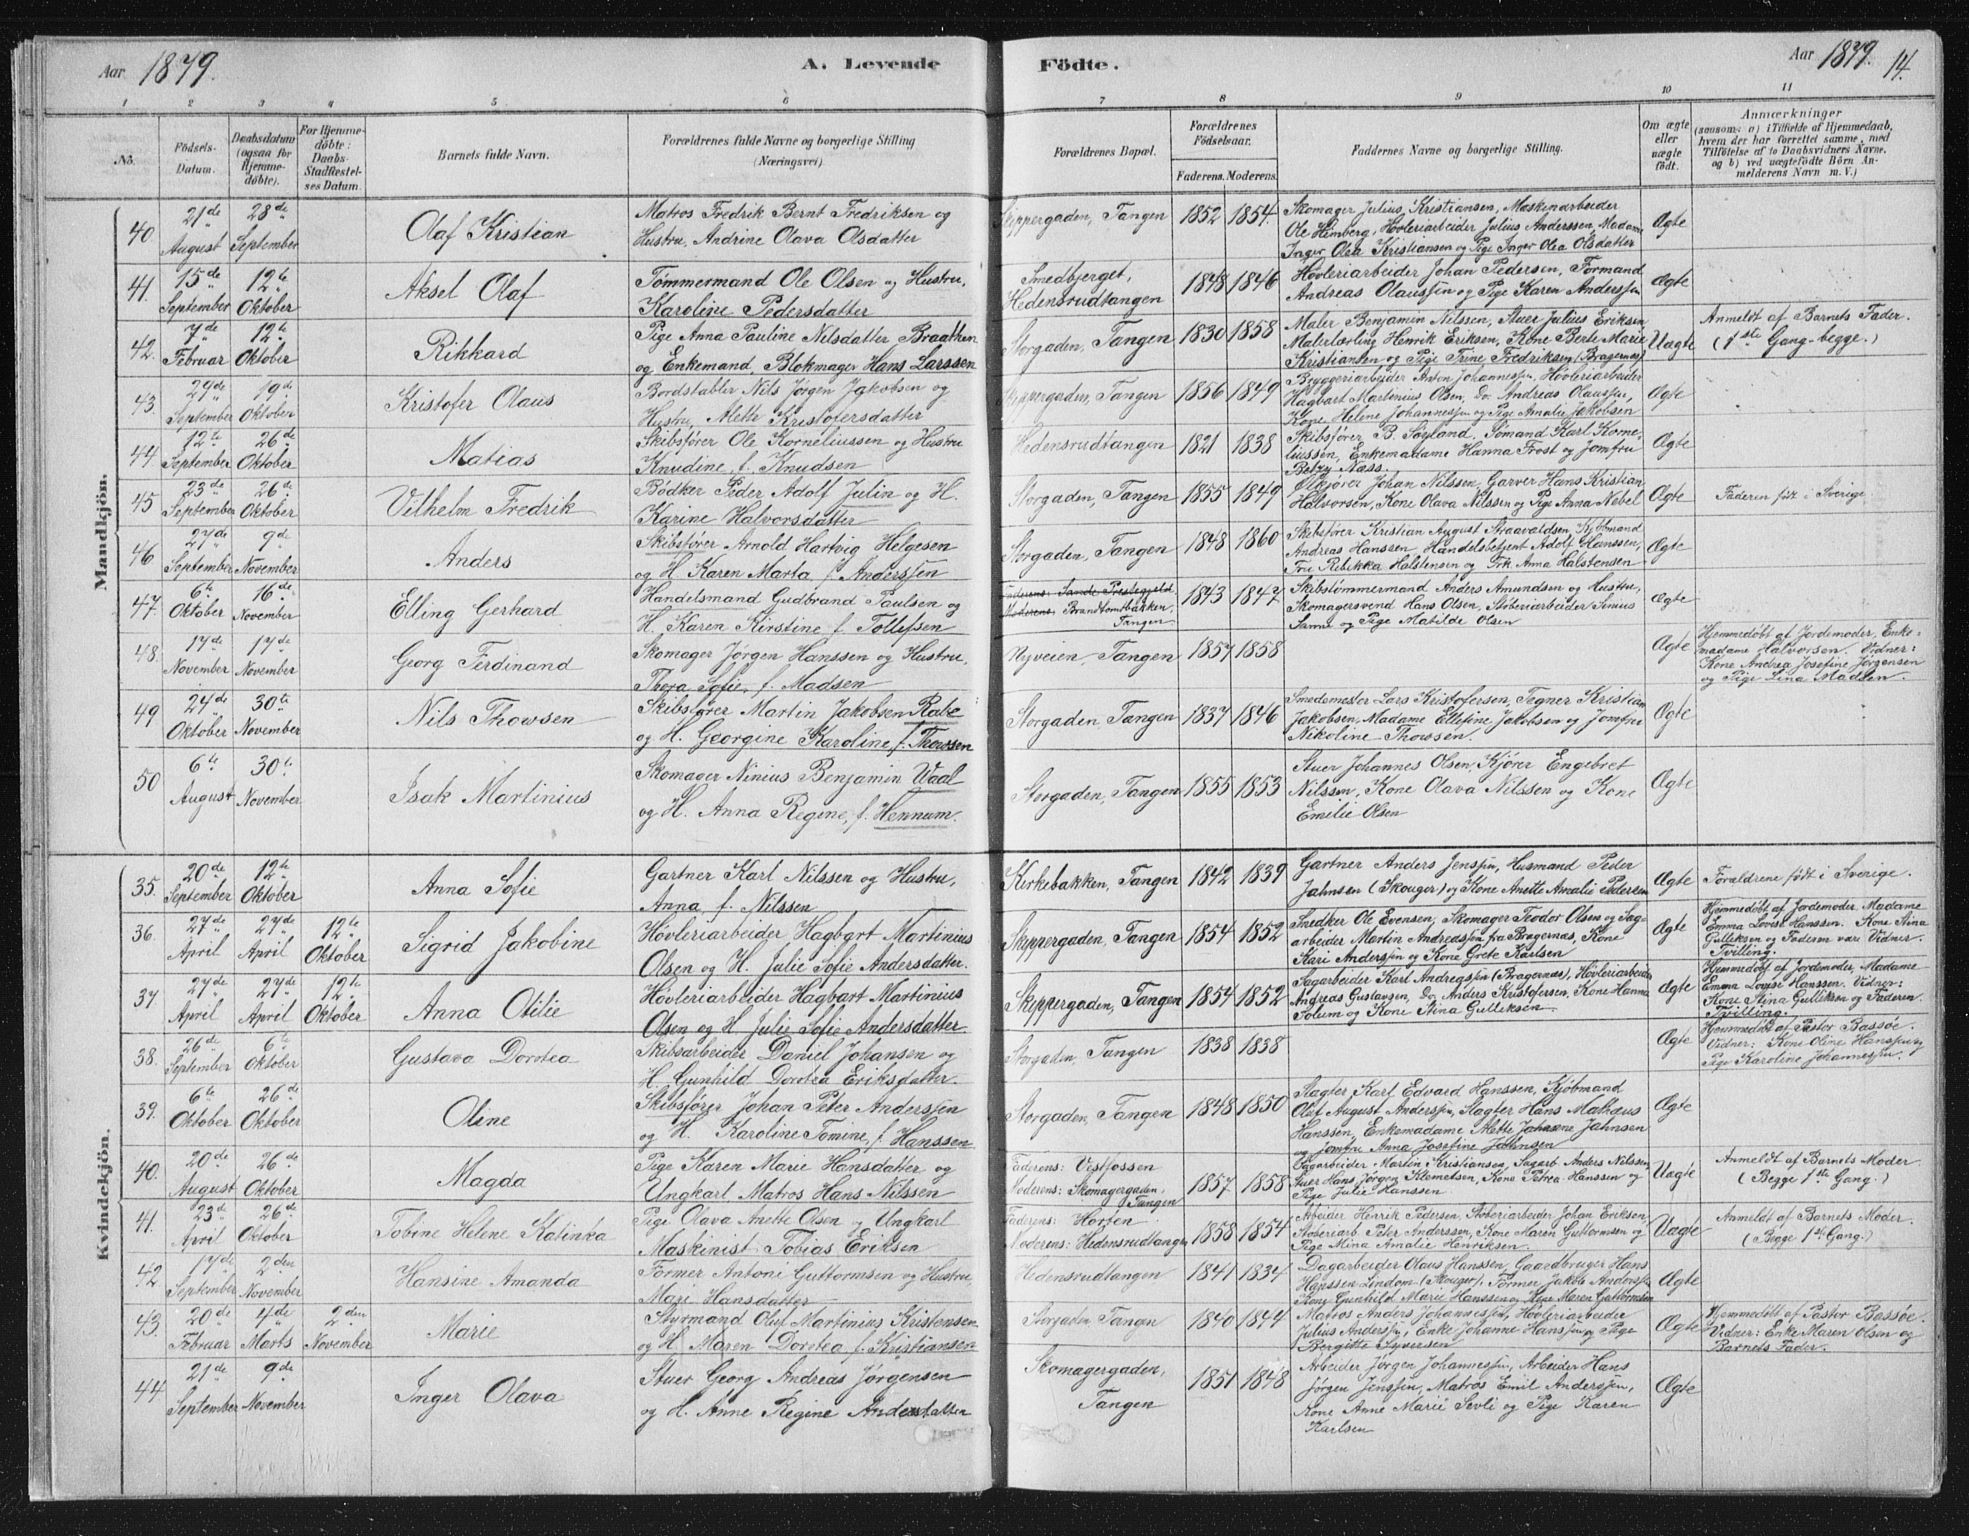 Aar 1879.
A. Levende
Födte.
Aar 1879.
14.
1 2 3 4 5 6 7 8 9 10 11
No.
Födsels-
Datum.
Daabsdatum
(ogsaa for
Hjemme-
döbte).
For Hjemme-
döbte:
Daabs-
Stadfæstel-
ses Datum.
Barnets fulde Navn.
Forældrenes fulde Navne og borgerlige Stilling
(Næringsvei)
Forældrenes Bopæl.
Forældrenes
Födselsaar.
Faderens. Moderens.
Faddernes Navne og borgerlige Stilling.
Om ægte
eller
uægte
födt.
Anmærkninger
(saasom: a) i Tilfælde af Hjemmedaab,
hvem der har forrettet samme, med
Tilföielse af to Daabsvidners Navne,
og b) ved uægtefödte Börn An-
melderens Navn m. V.)
Mandkjön.
40
21de August
28de September
Olaf Kristian
Matros Fredrik Bernt Fredriksen og
Hustru, Andrine Olava Olsdatter
Skippergaden, Tangen
1852 1854.
Skomager Julius Kristiansen, Maskinarbeider
Ole Himberg, Høvleriarbeider Julius Anderssen, Madame
Inger Olea Kristiansen og Pige Inger Olea Olsdatter
Ægte
41.
15de September
12te Oktober
Aksel Olaf
Tømmermand Ole Olsen og Hustru,
Karoline Pedersdatter
Smedbjerget,
Hedensrudtangen
1848 1846
Høvleriarbeider Johan Pedersen, Formand
Andreas Olaussen og Pige Karen Anderssen
Ægte
42.
7de Februar
12te Oktober
Rikkard
Pige Anna Pauline Nilsdatter Braathen
og Enkemand, Blokmager Hans Larssen
Storgaden, Tangen
1830 1858
Maler Benjamin Nilssen, Stuer Julius Eriksen
Malerlærling Henrik Eriksen, Kone Berte Marie
Kristiansen og Pige Trine Fredriksen (Bragernes)
Uægte
Anmeldt af Barnets Fader.
(1ste Gang begge.)
43.
29de September
19de Oktober
Kristofer Olaus
Bordstabler Nils Jørgen Jakobsen og
Hustru, Aleth Kristofersdatter
Skippergaden, Tangen
1856 1849
Bryggeriarbeider Anton Johannessen, Høvleriarbeider
Hagbart Martinius Olsen, Do. Andreas Olaussen,
Kone Helene Johannessen og Pige Amalie Jakobsen
Ægte
44
12te September
26de Oktober
Matias
Skibsfører Ole Korneliussen og Hustru
Knudine f. Knudsen
Hedensrudtangen
1821 1838
Skibsfører B. Søyland, Sømand Karl Korne-
liussen, Enkemadame Hanna Frost og Jomfru
Betzy Næss.
Ægte
45
23de September
26de Oktober
Vilhelm Fredrik
Bødker Peder Adolf Julin og H.
Karine Halvorsdatter
Storgaden, Tangen
1855 1849
Ølkjører Johan Nilssen, Garver Hans Kristian
Halvorsen, Kone Olava Nilssen og Pige Anna Nebel
Ægte
Faderen føt i Sverige
46
27de September
9de November
Anders
Skibsfører Arnold Hartvig Helgesen
og H. Karen Marta f. Anderssen
Storgaden, Tangen
1848 1860
Skibsfører Kristian August Skaavaldsen, Kjøbmand
Andreas Hanssen, Handelsbetjent Adolf Hanssen,
Fru Rebekka Halstensen og Frk Anna Halstensen
Ægte
47.
6te Oktober
16de November
Elling Gerhard
Handelsmand Gudbrand Paulsen og
H. Karen Kirstine f. Tollefsen
Faderens: Sande Prestegjeld
Moderens: Brandtomtbakken,
Tangen
1843 1847
Skibstømmermand Anders Amundsen og Hustru,
Skomagersvend Hans Olsen, Støberiarbeider Sinius
Sanne og Pige Matilde Olsen
Ægte
48.
17de November
17de November
Georg Ferdinand
Skomager Jørgen Hanssen og Hustru,
Thora Sofie, f. Madsen
Nyveien, Tangen
1857 1858
Ægte
Hjemmedøbt af Jordemoder, Enke-
madame Halvorsen. Vidner:
Kone Andrea Josefine Jørgensen
og Pige Lina Madsen.
49
24de Oktober
30te November
Nils Thowsen
Skibsfører Martin Jakobsen Rabe
og H. Georgine Karoline, f. Thowsen
Storgaden, Tangen
1837 1846
Smedemester Lars Kristofersen, Tegner Kristian
Jakobsen, Madame Ellefine Jakobsen og Jomfru
Nikoline Thowsen.
Ægte
50
6te August
30te November
Isak Martinius
Skomager Ninius Benjamin Vaal
og H. Anna Regine, f. Hennum.
Storgaden, Tangen
1855 1853
Stuer Johannes Olsen, Kjører Engebret
Nilssen, Kone Olava Nilssen og Kone
Emilie Olsen
Ægte
Kvindekjön.
35.
20de September
12te Oktober
Anna Sofie
Gartner Karl Nilssen og Hustru,
Anna, f. Nilssen
Kirkebakken, Tangen
1842 1839
Gartner Anders Jenssen, Husmand Peder
Jahnsen (Skouger) og Kone Anette Amalie Pedersen
Ægte
Forældrene født i Sverige.
36.
27de April
27de April
12te Oktober
Sigrid Jakobine
Høvleriarbeider Hagbart Martinius
Olsen og H. Julie Sofie Andersdatter.
Skippergaden, Tangen
1854 1852
Snedker Ole Evensen, Skomager Teodor Olsen og Sag-
arbeider Martin Andreassen fra Bragernæs, Kone
Kari Anderssen og Kone Grete Karlsen
Ægte
Hjemmedøbt af Jordemoder Madame
Emma Lovise Hanssen. Kone Stina
Gulliksen og Faderen vare Vidner.
Tvilling.
37
27de April
27de April
12te Oktober
Anna Otilie
Høvleriarbeider Hagbart Martinius
Olsen og H. Julie Sofie Andersdatter
Skippergaden, Tangen
1854 1852
Sagarbeider Karl Andreassen (Bragernæs), Høvleriarbeider
Andreas Gustavsen, Do. Anders Kristofersen, Kone Hanna
Solum og Kone Stina Gulliksen
Ægte
Hjemmedøbt af Jordemoder, Madame
Emma Lovise Hanssen. Vidner:
Kone Stina Gulliksen og Faderen.
Tvilling.
38.
26de September
6te Oktober
Gustava Dorotea
Skibsarbeider Daniel Johansen og
H. Gunhild Dorotea Eriksdatter.
Storgaden, Tangen
1838 1838
Ægte
Hjemmedøbt af Pastor Bassøe.
Vidner: Kone Oline Hanssen og
Pige Karoline Johannessen.
39.
6te Oktober
26de Oktober
Oline
Skibsfører Johan Peter Anderssen
og H. Karoline Tomine, f. Hanssen
Storgaden, Tangen
1848 1850
Slagter Karl Edvard Hanssen, Kjøbmand
Oluf August Anderssen, Slagter Hans Mathæus
Hanssen, Enkemadame Alette Jahnsen
og Jomfru Anna Josefine Jahnsen
Ægte
40.
20de August
26de Oktober
Magda
Pige Karen Marie Hansdatter og
Ungkarl Matros Hans Nilssen
Faderens: Vestfossen
Moderens: Skomagergaden,
Tangen
1857 1858
Sagarbeider Martin Kristiansen, Sagarb. Anders Nilssen
Stuer Hans Jørgen Klemetsen, Kone Petrea Hanssen og
Pige Julie Hanssen.
Uægte
Anmeldt af Barnets Moder
(Begge 1ste Gang.)
41.
23de April
26de Oktober
Tobine Helene Katinka
Pige Olava Anette Olsen og Ungkarl
Maskinist Tobias Eriksen
Faderens: Horten
Moderens: Hedensrudtangen
1858 1854
Arbeider Henrik Pedersen, Støberiarbeider Johan Eriksen,
Støberiarb. Peter Anderssen, Kone Maren Guttormsen og
Pige Mina Amalie Henriksen.
Uægte
Anmeldt af Barnets Moder.
(Begge 1ste Gang.)
42
17de September
2den November
Hansine Amanda
Former Antoni Guttormsen og Hustru
Mari Hansdatter
Hedensrudtangen
1841 1834
Dagarbeider Olaus Hanssen, Gaardbruger Hans
Hanssen Lindom (Skouger), Former Jakob Anderssen
Kone Gunhild Marie Hanssen og Kone Maren Guttormsen
Ægte
43.
20de Februar
4de Marts
2den November
Marie
Styrmand Oluf Martinius Kristensen
og H. Maren Dorotea f. Kristiansen
Storgaden, Tangen
1840 1844
Matros Anders Johannessen, Høvleriarbeider
Julius Anderssen, Enke Johanne Hanssen og Pige
Bergitte Syversen
Ægte
Hjemmedøbt af Pastor Bassøe.
Vidner: Enke Maren Olsen og
Barnets Fader.
44
21de September
9de November
Inger Olava
Stuer Georg Andreas Jørgensen
og H. Anne Regine Andersdatter
Skomagergaden,
Tangen
1851 1848
Arbeider Jørgen Johannessen, Arbeider Hans
Jørgen Jenssen, Matros Emil Anderssen,
Kone Anne Marie Sevli og Pige Karen
Karlsen
Ægte